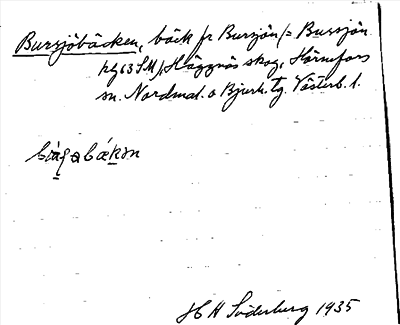 Bursjöbäcken, bäck fr Bursjön (= Bussjön
hg 63 SM), Häggnäs skog, Hörnefors
sn. Nordmal. o Bjurh. tg. Västerb. l.
H Söderberg 1935